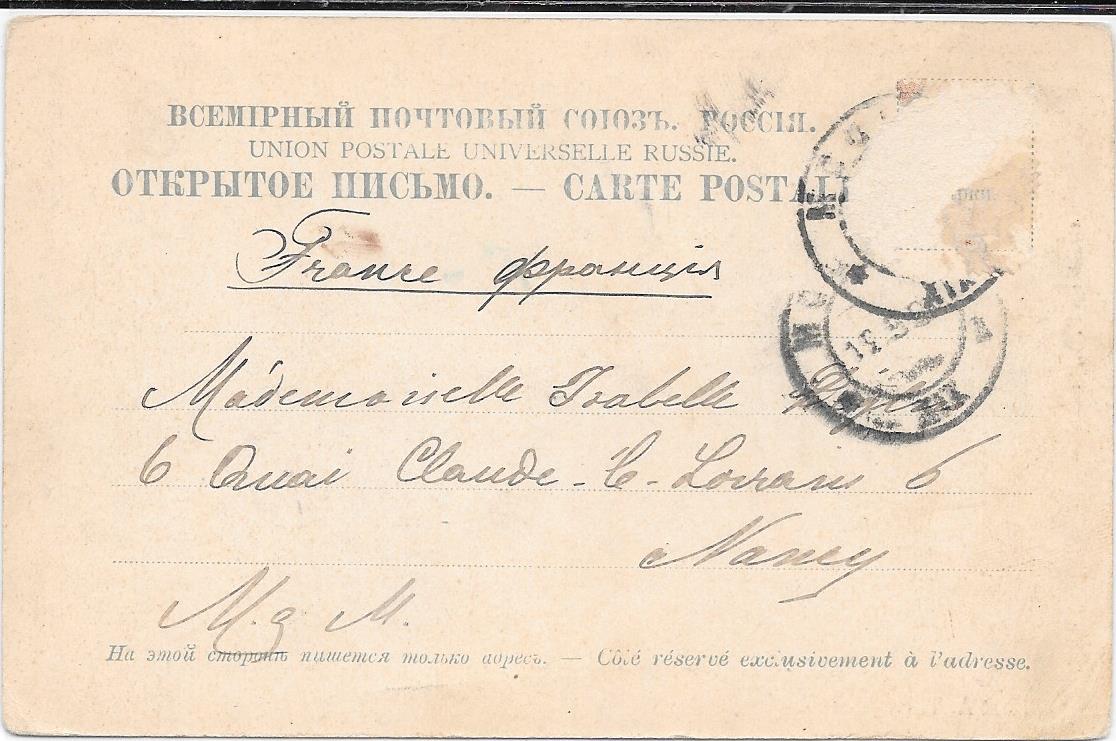 ВСЕМІРНЫЙ ПОЧТОВЫЙ СОЮЗЪ. РОССІЯ.
UNION POSTALE UNIVERSELLE RUSSIE.
ОТКРЫТОЕ ПИСЬМО. — CARTE POSTALE
France франція
Mademoiselle Isabelle
6 Quai Claude-le-Lorrain 6
Nancy
M. g M.
На этой сторонѣ пишется только адресъ. — Côté réservé exclusivement à l'adresse.